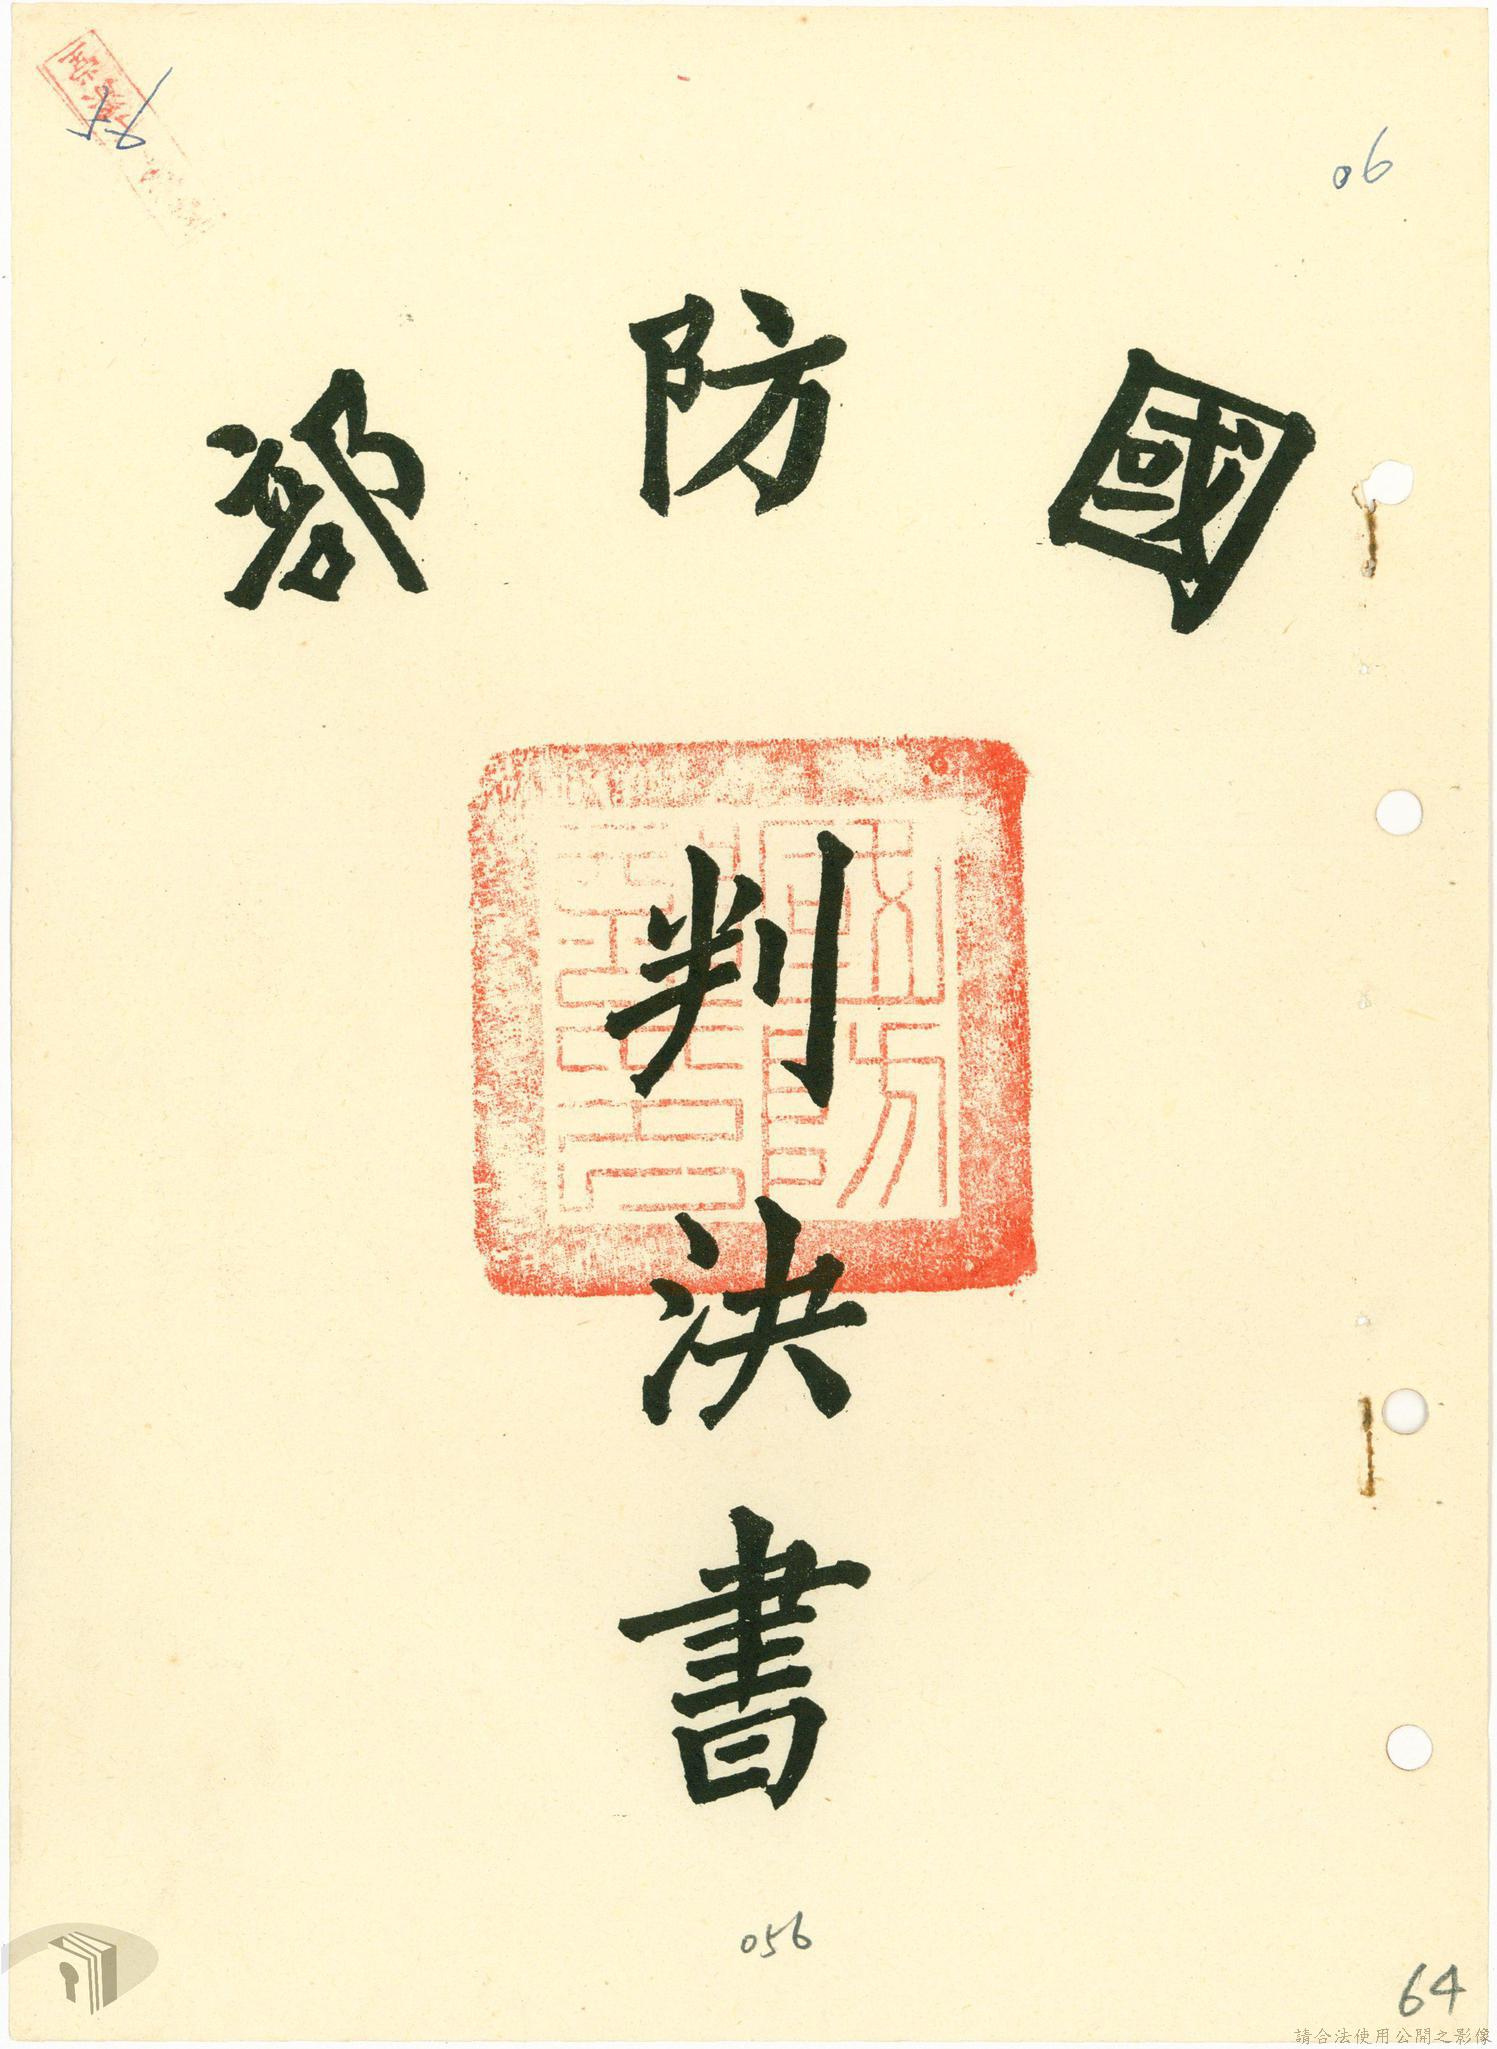 56
06
國防部
判決書
056
64
請合法使用公開之影像